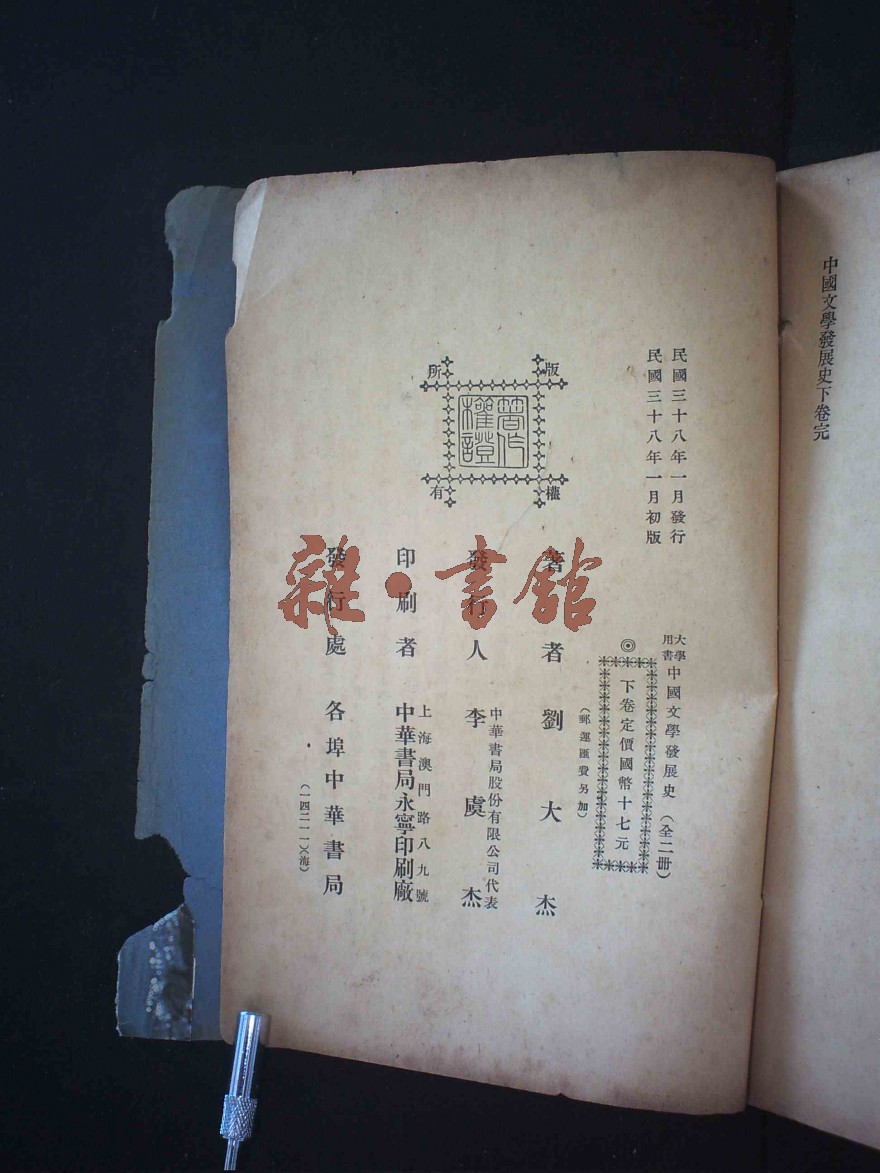 中國文學發展史下卷完
民國三十八年一月發行
民國三十八年一月初版
大學用書 中國文學發展史（全二冊）
◎下卷定價國幣十七元
（郵運匯費另加）
版權所有
著作權證
著者 劉大杰
中華書局股份有限公司代表
發行人 李虞杰
上海澳門路八九號
印刷者 中華書局永寧印刷廠
發行處 各埠中華書局
（一四二一一）（海）
雜·書館